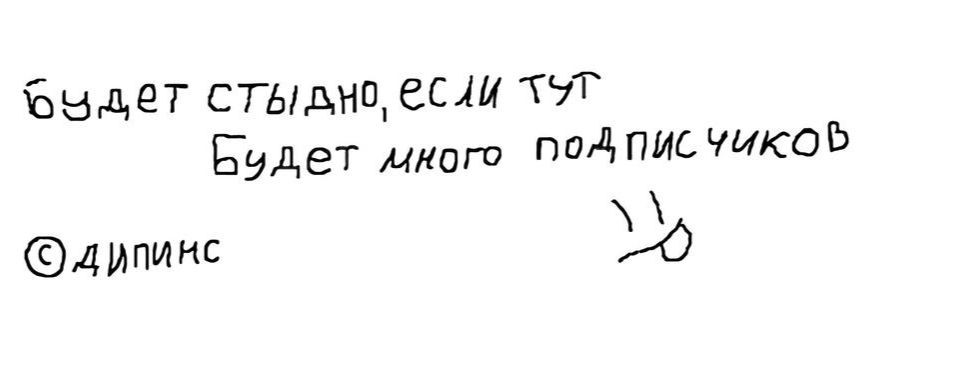 Будет стыдно, если тут
Будет много подписчиков
©дипинс